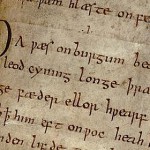 ham hlæste onfe
·I·
Ða wæs onburgum be
leod cyning longe þra
ge fæder ellor hwearf
oþ him eft onwoc heah